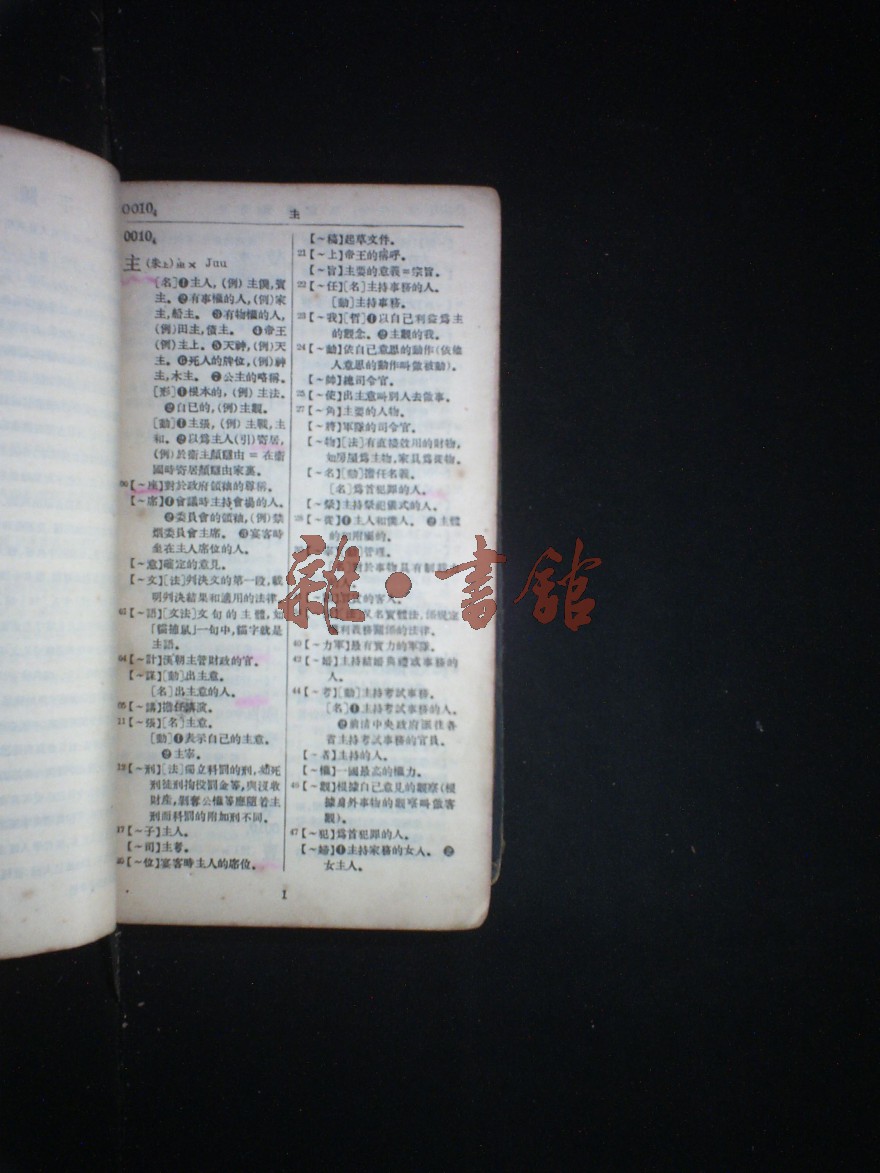 0010₄
主
0010₄
主 (朱上) ㄓㄨ Juu
[名]❶主人,(例)主僕,賓
主。❷有事權的人,(例)家
主,船主。❸有物權的人,
(例)田主,債主。❹帝王
(例)主上。❺天神,(例)天
主。❻死人的牌位,(例)神
主,木主。❼公主的略稱。
[形]❶根本的,(例)主法。
❷自己的,(例)主觀。
[動]❶主張,(例)主戰,主
和。❷以爲主人(引)寄居,
(例)於衞主顏讎由=在衞
國時寄居顏讎由家裏。
00【~座】對於政府領袖的尊稱。
【~席】❶會議時主持會場的人。
❷委員會的領袖,(例)禁
煙委員會主席。❸宴客時
坐在主人席位的人。
【~意】確定的意見。
【~文】[法]判決文的第一段,載
明判決結果和適用的法律
【~語】[文法]文句的主體,如
「貓捕鼠」一句中,貓字就是
主語。
04【~計】漢朝主管財政的官。
【~謀】[動]出主意。
[名]出主意的人。
05【~講】擔任講演。
11【~張】[名]主意。
[動]❶表示自己的主意。
❷主宰。
12【~刑】[法]獨立科罰的刑,如死
刑徒刑拘役罰金等,與沒收
財產,剝奪公權等應隨着主
刑而科罰的附加刑不同。
17【~子】主人。
【~司】主考。
20【~位】宴客時主人的席位。
【~稿】起草文件。
21【~上】帝王的稱呼。
【~旨】主要的意義=宗旨。
22【~任】[名]主持事務的人。
[動]主持事務。
23【~我】[哲]❶以自己利益爲主
的觀念。❷主觀的我。
24【~動】依自己意思的動作(依他
人意思的動作叫做被動)。
【~帥】總司令官。
25【~使】出主意叫別人去做事。
27【~角】主要的人物。
【~將】軍隊的司令官。
【~物】[法]有直接效用的財物,
如房屋爲主物,家具爲從物。
【~名】[動]擔任名義。
[名]爲首犯罪的人。
【~祭】主持祭祀儀式的人。
28【~從】❶主人和僕人。❷主體
和附屬的。
管理。
對於事物具有制裁
的客人。
又名實體法,係規定
權利義務關係的法律。
40【~力軍】最有實力的軍隊。
42【~婚】主持結婚典禮或事務的
人。
44【~考】[動]主持考試事務。
[名]❶主持考試事務的人。
❷前清中央政府派往各
省主持考試事務的官員。
【~者】主持的人。
【~權】一國最高的權力。
46【~觀】根據自己意見的觀察(根
據身外事物的觀察叫做客
觀)。
47【~犯】爲首犯罪的人。
【~婦】❶主持家務的女人。❷
女主人。
1
雜·書館